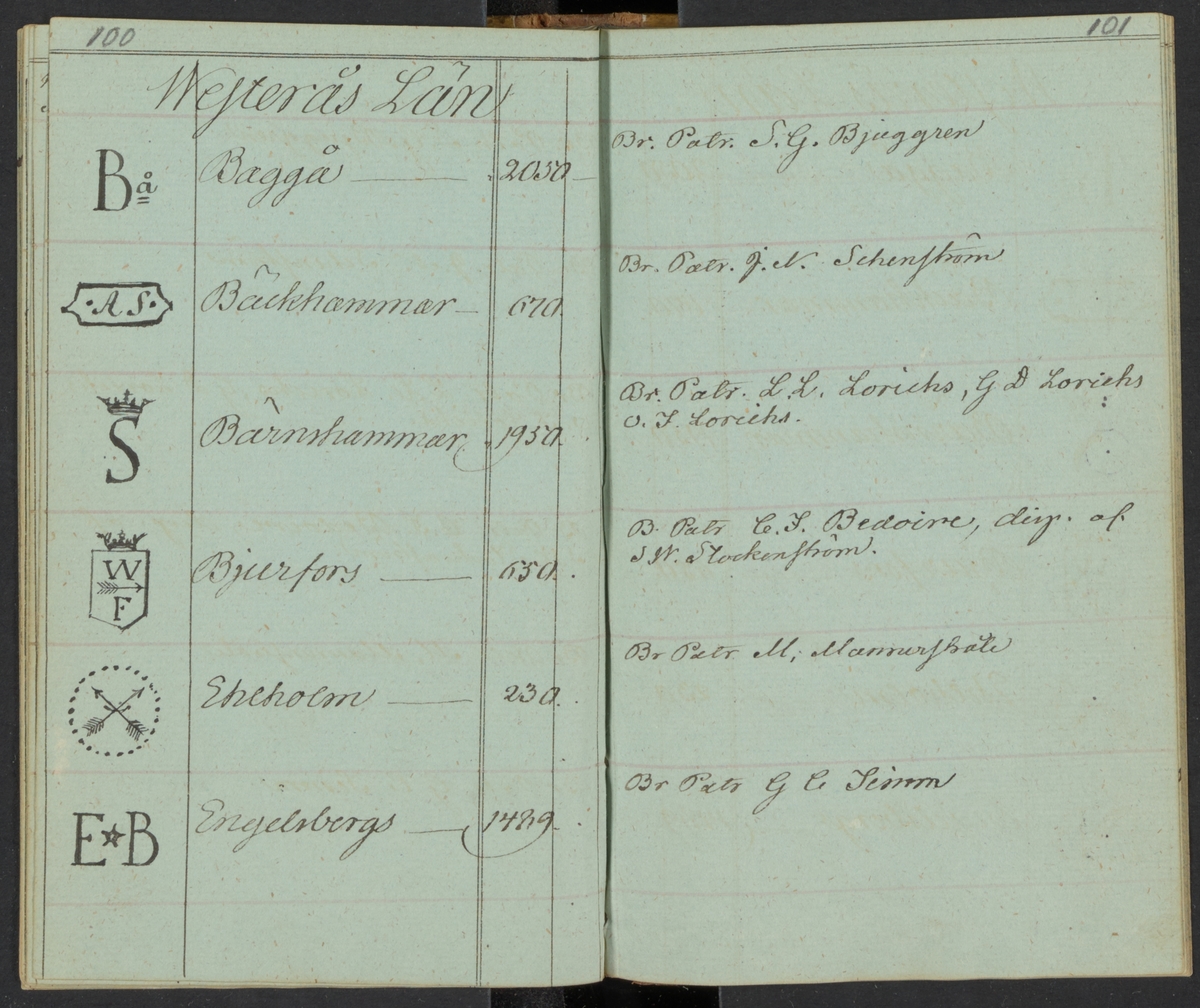 100
101
Westerås Län
Bå Baggå 2050
Br. Patr. S. G. Bjuggren
A S. Bäckhammar 670.
Br. Patr. J. N. Schenström
S Bärnshammar 1950.
Br. Patr. L. L. Lorichs, G D Lorichs
o. F. Lorichs.
W F Bjurfors 650.
B. Patr C. F. Bedoire, disp. af
S W. Stockenström.
Ekeholm 230.
Br Patr. M; Mannerskatz
E B Engelsbergs 1489.
Br Patr G C Timm